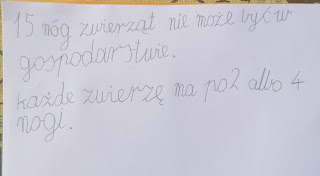 15 nóg zwierząt nie może być w
gospodarstwie.
każde zwierzę ma po 2 albo 4
nogi.